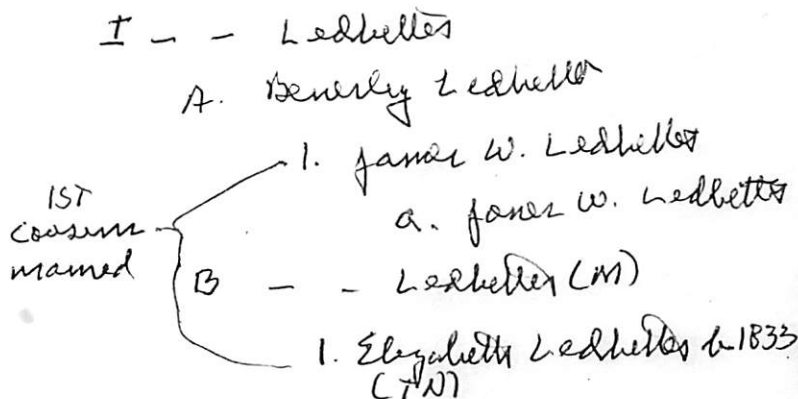 I - - Ledbetter
A. Beverley Ledbetter
1. James W. Ledbetter
a. James W. Ledbetter
1ST
cousins
married
B - - Ledbetter (M)
1. Elizabeth Ledbetter b 1833
(TN)